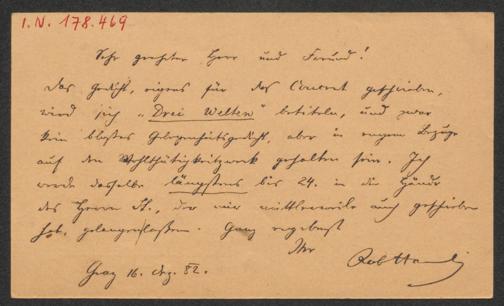 I.N. 178.469
Sehr geehrter Herr und Freund!
Das Gedicht, eigens für das Concert geschrieben,
wird sich "Drei Welten" betiteln, und zwar
kein bloßes Gelegenheitsgedicht, aber in engem Bezuge
auf den Wohlthätigkeitszweck gehalten sein. Ich
werde dasselbe längstens bis 24. in die Hände
des Herrn St., der mir mittlerweile auch geschrieben
hat, gelangen lassen. Ganz ergebenst
Ihr
Graz 16. 82.